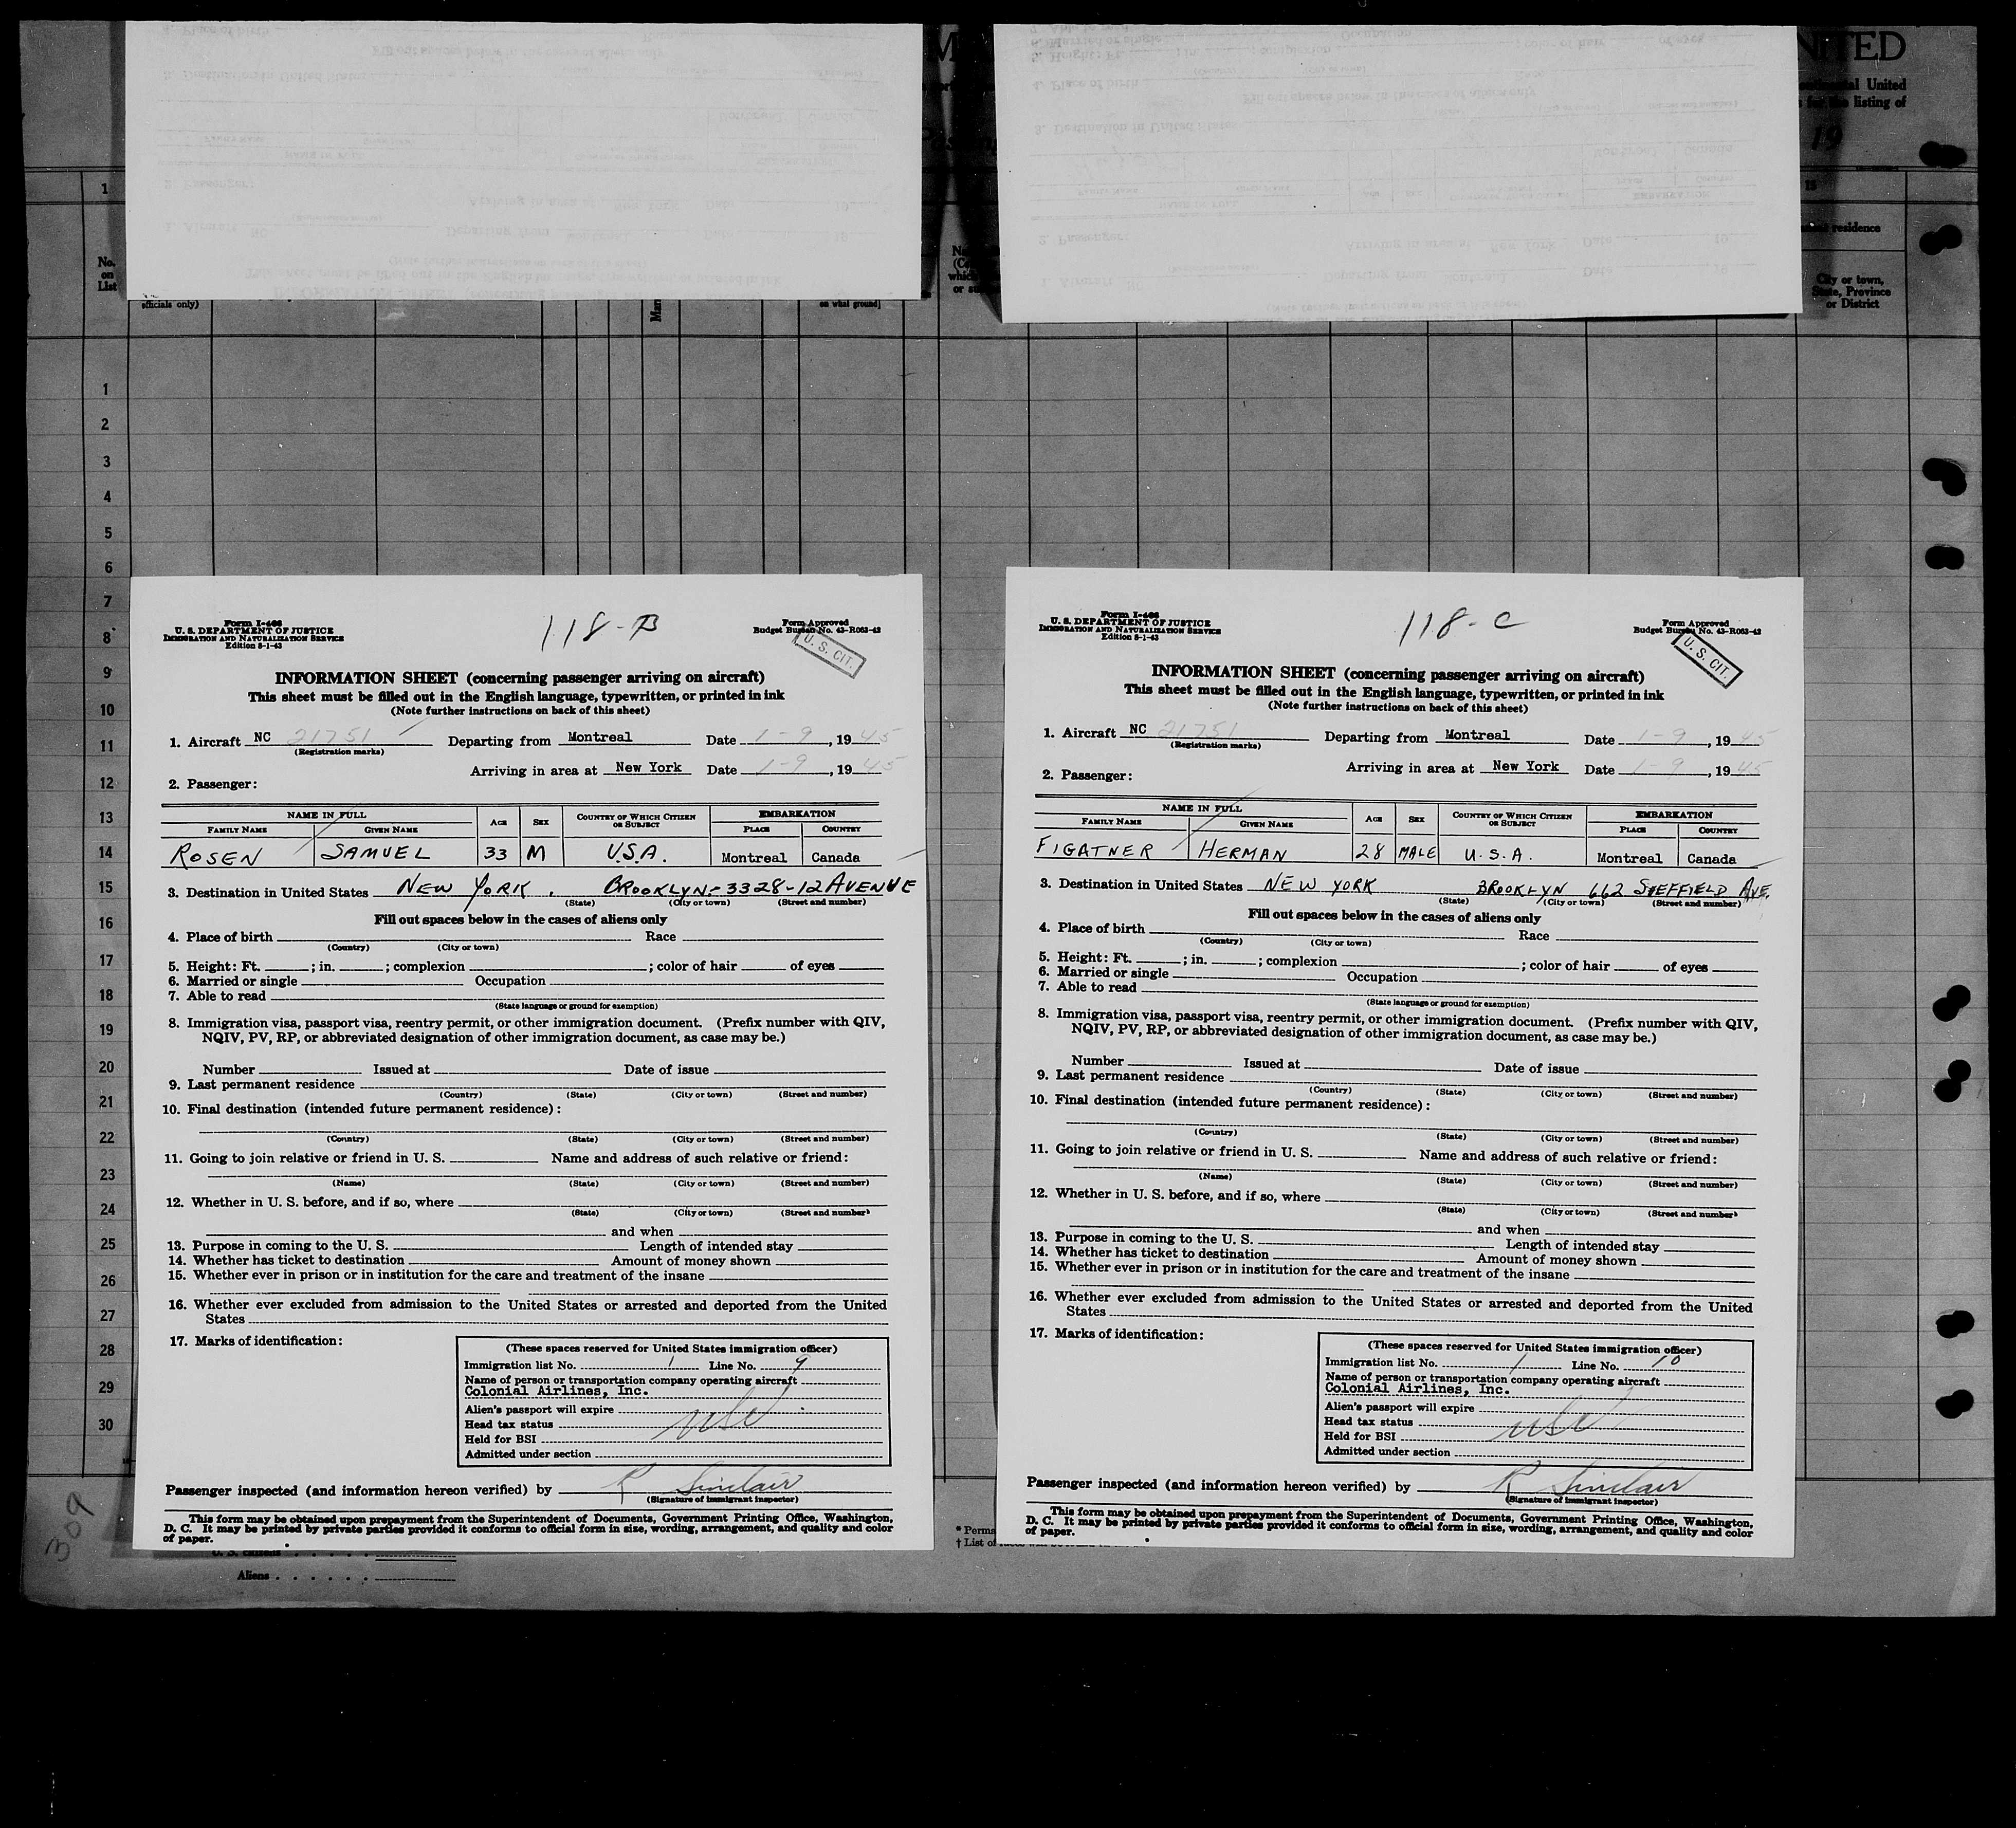 NITED
al United
for the listing of
19
1
15
residence
No.
on
List
officials only)
on what ground]
City or town,
State, Province
or District
1
2
3
4
5
6
7
8
9
10
11
12
13
14
15
16
17
18
19
20
21
22
23
24
25
26
27
28
29
30
309
Form I-466
U. S. DEPARTMENT OF JUSTICE
IMMIGRATION AND NATURALIZATION SERVICE
Edition 5-1-43
118-B
Form Approved
Budget Bureau No. 43-R063-42
U. S. CIT.
INFORMATION SHEET (concerning passenger arriving on aircraft)
This sheet must be filled out in the English language, typewritten, or printed in ink
(Note further instructions on back of this sheet)
1. Aircraft NC 21751 Departing from Montreal Date 1-9, 1945
(Registration marks)
Arriving in area at New York Date 1-9, 1945
2. Passenger:
NAME IN FULL AGE SEX COUNTRY OF WHICH CITIZEN OR SUBJECT EMBARKATION
FAMILY NAME GIVEN NAME PLACE COUNTRY
ROSEN SAMUEL 33 M U.S.A. Montreal Canada
3. Destination in United States NEW YORK. BROOKLYN.-3328-12 AVENUE
(State) (City or town) (Street and number)
Fill out spaces below in the cases of aliens only
4. Place of birth Race
(Country) (City or town)
5. Height: Ft. ; in. ; complexion ; color of hair of eyes
6. Married or single Occupation
7. Able to read
(State language or ground for exemption)
8. Immigration visa, passport visa, reentry permit, or other immigration document. (Prefix number with QIV,
NQIV, PV, RP, or abbreviated designation of other immigration document, as case may be.)
Number Issued at Date of issue
9. Last permanent residence
(Country) (State) (City or town) (Street and number)
10. Final destination (intended future permanent residence):
(Country) (State) (City or town) (Street and number)
11. Going to join relative or friend in U. S. Name and address of such relative or friend:
(Name) (State) (City or town) (Street and number)
12. Whether in U. S. before, and if so, where
(State) (City or town) (Street and number)
and when
13. Purpose in coming to the U. S. Length of intended stay
14. Whether has ticket to destination Amount of money shown
15. Whether ever in prison or in institution for the care and treatment of the insane
16. Whether ever excluded from admission to the United States or arrested and deported from the United
States
17. Marks of identification:
(These spaces reserved for United States immigration officer)
Immigration list No. 1 Line No. 9
Name of person or transportation company operating aircraft
Colonial Airlines, Inc.
Alien's passport will expire
Head tax status usc
Held for BSI
Admitted under section
Passenger inspected (and information hereon verified) by R Sinclair
(Signature of immigrant inspector)
This form may be obtained upon prepayment from the Superintendent of Documents, Government Printing Office, Washington,
D. C. It may be printed by private parties provided it conforms to official form in size, wording, arrangement, and quality and color
of paper.
U. S. citizens
Aliens
Form I-466
U. S. DEPARTMENT OF JUSTICE
IMMIGRATION AND NATURALIZATION SERVICE
Edition 5-1-43
118-C
Form Approved
Budget Bureau No. 43-R063-42
U. S. CIT.
INFORMATION SHEET (concerning passenger arriving on aircraft)
This sheet must be filled out in the English language, typewritten, or printed in ink
(Note further instructions on back of this sheet)
1. Aircraft NC 21751 Departing from Montreal Date 1-9, 1945
(Registration marks)
Arriving in area at New York Date 1-9, 1945
2. Passenger:
NAME IN FULL AGE SEX COUNTRY OF WHICH CITIZEN OR SUBJECT EMBARKATION
FAMILY NAME GIVEN NAME PLACE COUNTRY
FIGATNER HERMAN 28 MALE U.S.A. Montreal Canada
3. Destination in United States NEW YORK BROOKLYN 662 SHEFFIELD AVE.
(State) (City or town) (Street and number)
Fill out spaces below in the cases of aliens only
4. Place of birth Race
(Country) (City or town)
5. Height: Ft. ; in. ; complexion ; color of hair of eyes
6. Married or single Occupation
7. Able to read
(State language or ground for exemption)
8. Immigration visa, passport visa, reentry permit, or other immigration document. (Prefix number with QIV,
NQIV, PV, RP, or abbreviated designation of other immigration document, as case may be.)
Number Issued at Date of issue
9. Last permanent residence
(Country) (State) (City or town) (Street and number)
10. Final destination (intended future permanent residence):
(Country) (State) (City or town) (Street and number)
11. Going to join relative or friend in U. S. Name and address of such relative or friend:
(Name) (State) (City or town) (Street and number)
12. Whether in U. S. before, and if so, where
(State) (City or town) (Street and number)
and when
13. Purpose in coming to the U. S. Length of intended stay
14. Whether has ticket to destination Amount of money shown
15. Whether ever in prison or in institution for the care and treatment of the insane
16. Whether ever excluded from admission to the United States or arrested and deported from the United
States
17. Marks of identification:
(These spaces reserved for United States immigration officer)
Immigration list No. 1 Line No. 10
Name of person or transportation company operating aircraft
Colonial Airlines, Inc.
Alien's passport will expire
Head tax status usc
Held for BSI
Admitted under section
Passenger inspected (and information hereon verified) by R Sinclair
(Signature of immigrant inspector)
This form may be obtained upon prepayment from the Superintendent of Documents, Government Printing Office, Washington,
D. C. It may be printed by private parties provided it conforms to official form in size, wording, arrangement, and quality and color
of paper.
* Perma
† List of